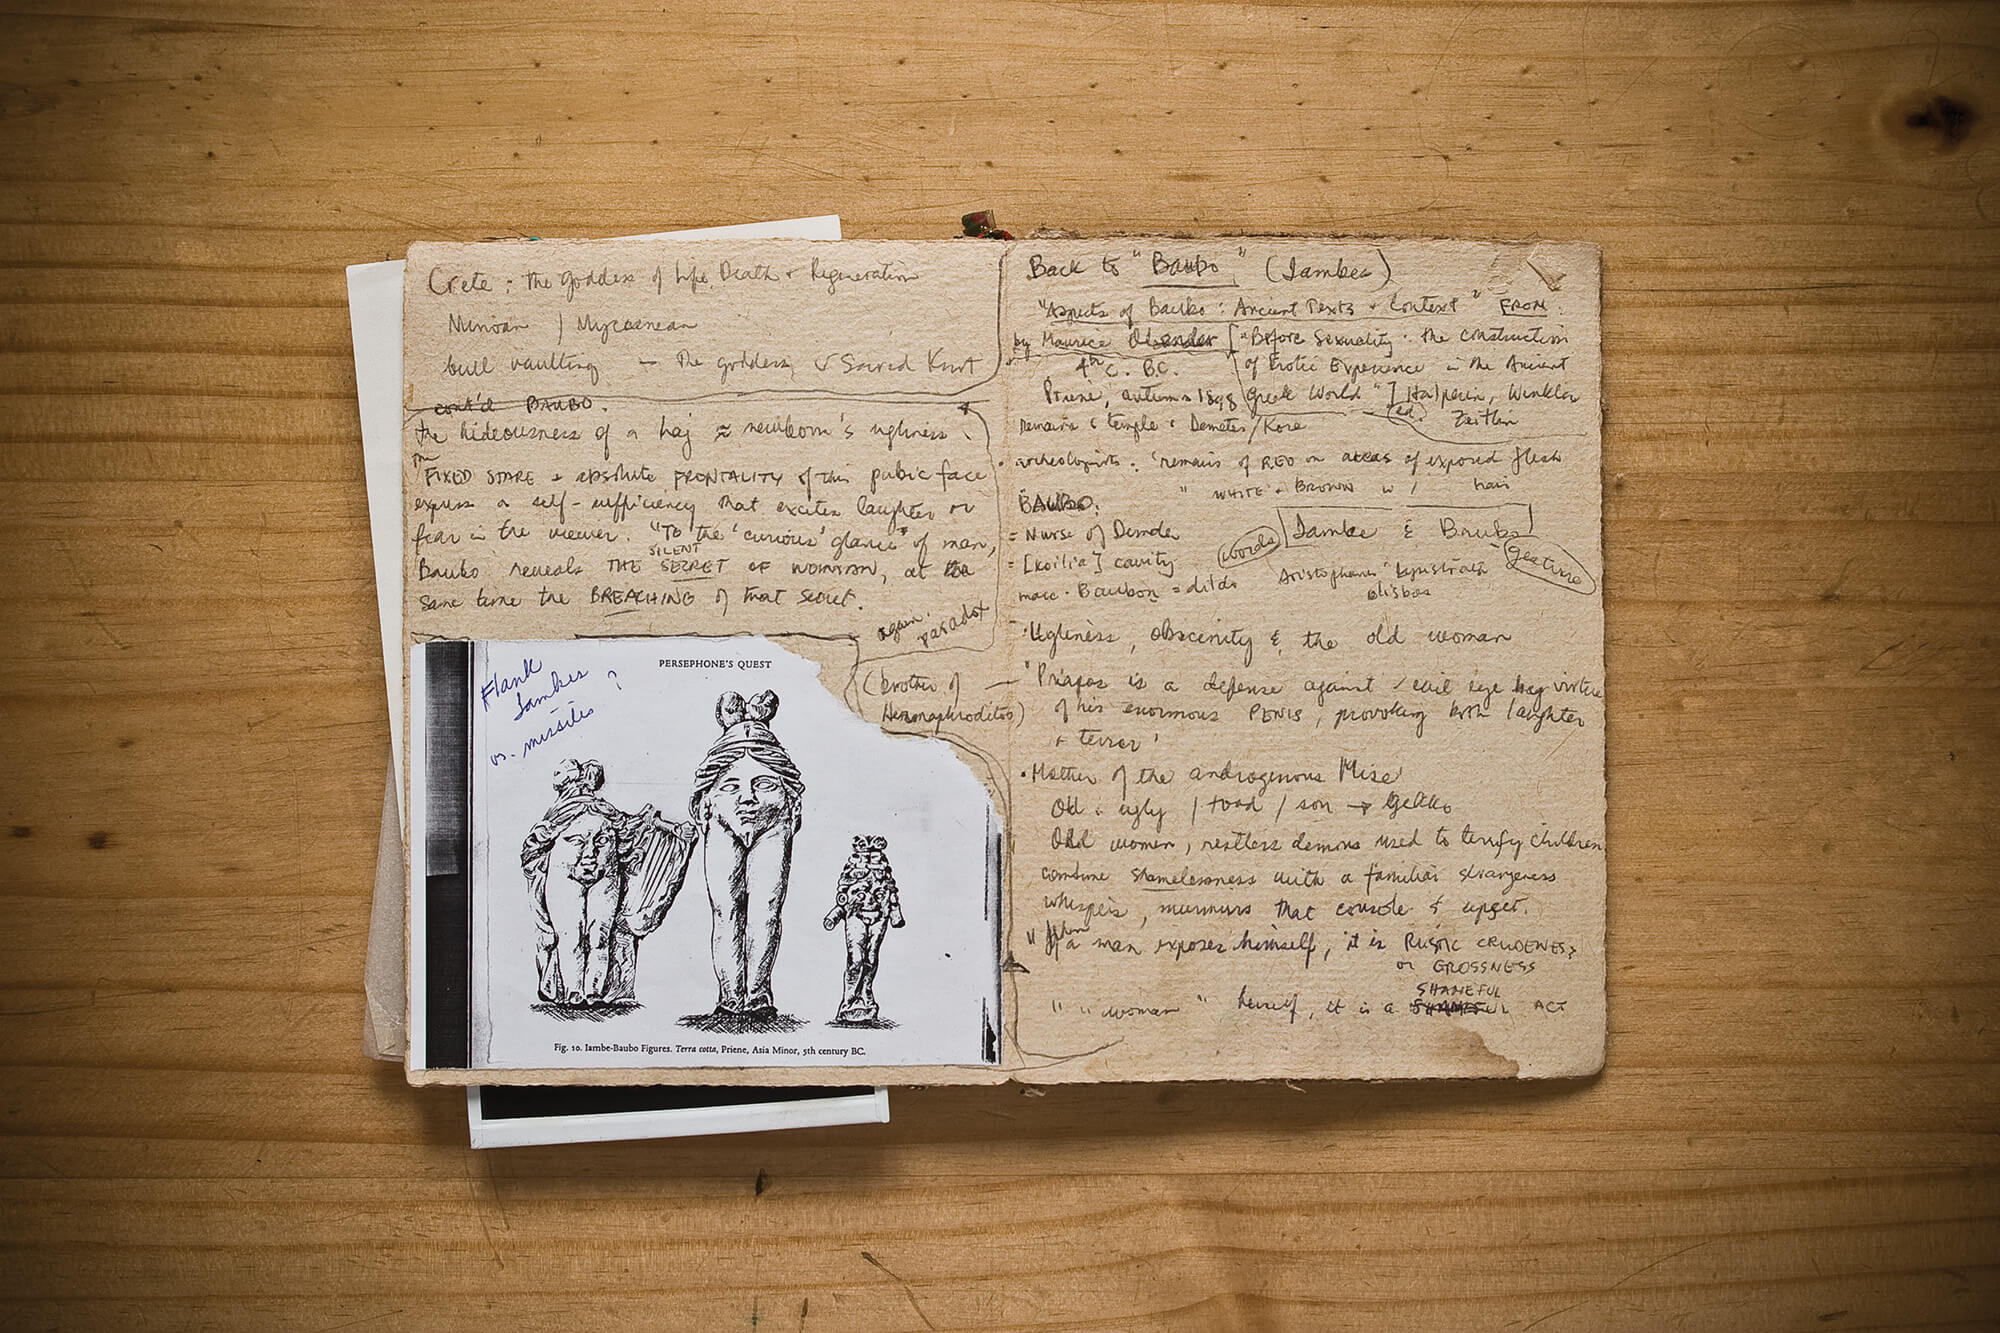 Crete : the goddess of Life, Death + Regeneration
Minoan / Mycaenean
bull vaulting — the goddess Sacred Knot
cont'd BAUBO.
the hideousness of a hag ≈ newborn's ugliness.
The FIXED STARE + absolute FRONTALITY of this pubic face
express a self-sufficiency that excites laughter or
fear in the viewer. "To the 'curious' glance" of man,
Baubo reveals THE SILENT SECRET OF WOMAN, at the
same time the BREACHING of that secret.
again, paradox
(brother of
Hermaphroditos)
Flank
Iambes ?
vs. missiles
PERSEPHONE'S QUEST
Fig. 10. Iambe-Baubo Figures. Terra cotta, Priene, Asia Minor, 5th century BC.
Back to "Baubo" (Iambe)
"Aspects of Baubo : Ancient Texts + Context" FROM :
by Maurice Olender ["Before Sexuality : the construction
of Erotic Experience in the Ancient
Greek World"] Halperin, Winkler
ed. Zeitlin
4th C. B.C.
Priene, autumn 1898
remains temple Demeter/Kore
• archeologists : 'remains of RED on areas of exposed flesh
" WHITE + BROWN " hair
BAUBO:
= Nurse of Demeter
= [koilia] cavity
masc. Baubon = dildo
words Iambe & Baubo gesture
Aristophanes' Lysistrata
olisbos
Ugliness, obscenity & the old woman
"Priapos is a defense against / evil eye by virtue
of his enormous PENIS, provoking both laughter
+ terror'
• Mother of the androgenous Mise
Old : ugly / toad / → Gello
Old women, restless demons used to terrify children
combine shamelessness with a familiar strangeness
whispers, murmurs that console & upset.
"If a man exposes himself, it is RUSTIC CRUDENESS
or GROSSNESS
" " woman " herself, it is a SHAMEFUL ACT